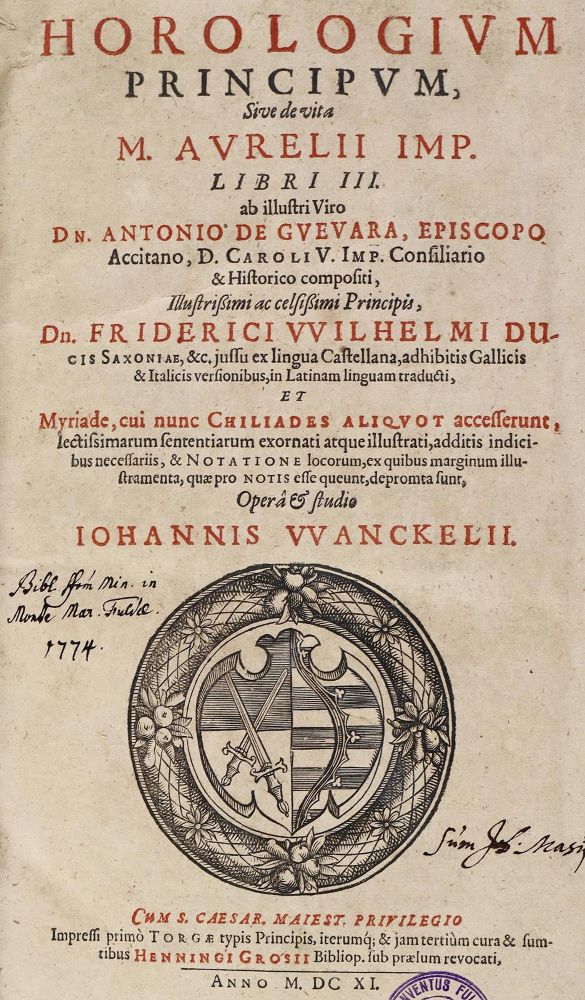 HOROLOGIVM
PRINCIPVM,
Sive de vita
M. AVRELII IMP.
LIBRI III.
ab illustri Viro
DN. ANTONIO DE GVEVARA, EPISCOPO
Accitano, D. CAROLI V. IMP. Consiliario
& Historico compositi,
Illustrißimi ac celsißimi Principis,
Dn. FRIDERICI VVILHELMI DU-
CIS SAXONIAE, &c. jussu ex lingua Castellana, adhibitis Gallicis
& Italicis versionibus, in Latinam linguam traducti,
ET
Myriade, cui nunc CHILIADES ALIQVOT accesserunt,
lectissimarum sententiarum exornati atque illustrati, additis indici-
bus necessariis, & NOTATIONE locorum, ex quibus marginum illu-
stramenta, quæ pro NOTIS esse queunt, depromta sunt,
Operâ & studio
IOHANNIS VVANCKELII.
Bibl. ffrm Min. in
Monte Mar. Fuldæ.
1774.
Sum Joh:
CUM S. CAESAR. MAIEST. PRIVILEGIO
Impressi primò TORGÆ typis Principis, iterumq́; & jam tertiùm cura & sum-
tibus HENNINGI GROSII Bibliop. sub prælum revocati,
ANNO M. DC XI.